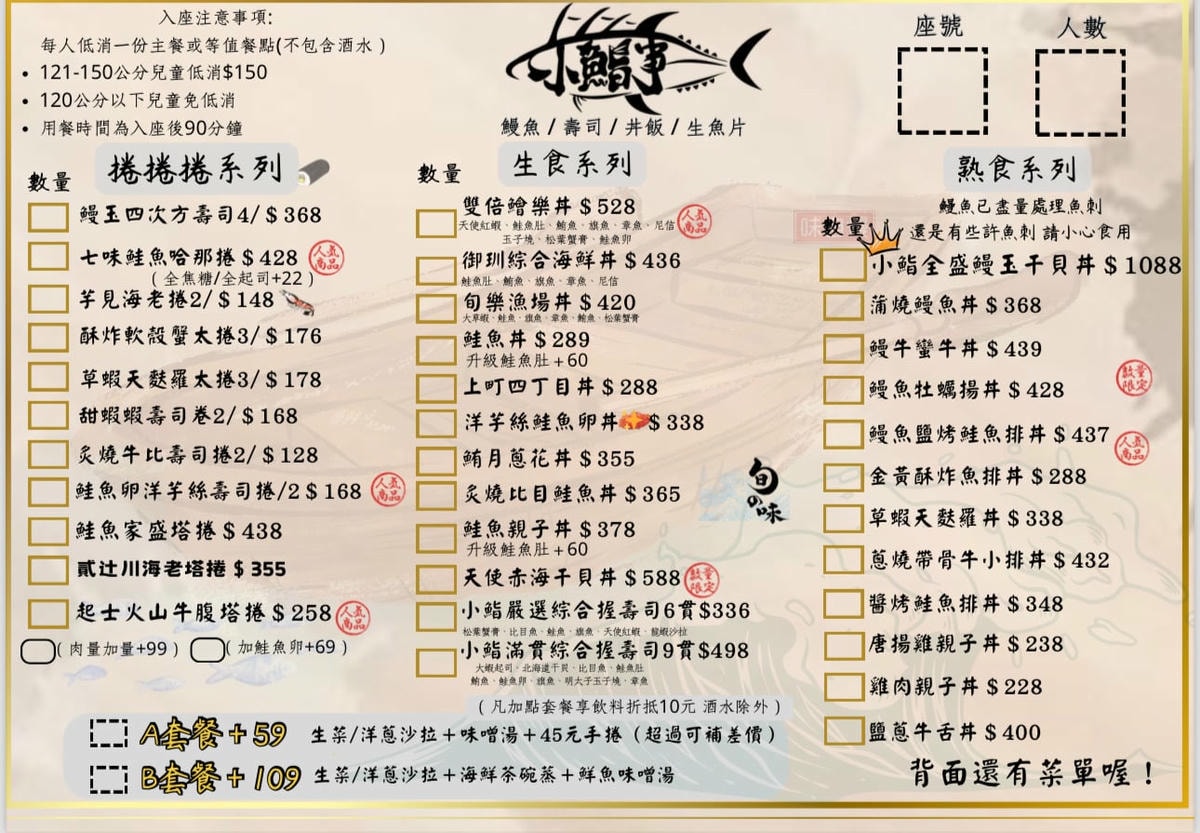 入座注意事項:
每人低消一份主餐或等值餐點(不包含酒水 )
• 121-150公分兒童低消$150
• 120公分以下兒童免低消
• 用餐時間為入座後90分鐘
鰻魚 / 壽司 / 丼飯 / 生魚片
座號
人數
數量
捲捲捲系列
鰻玉四次方壽司4/ $ 368
七味鮭魚哈那捲 $ 428 人氣商品
( 全焦糖/全起司+22 )
芋見海老捲2/ $ 148
酥炸軟殼蟹太捲3/ $ 176
草蝦天麩羅太捲3/ $ 178
甜蝦蝦壽司卷2/ $ 168
炙燒牛比壽司捲2/ $ 128
鮭魚卵洋芋絲壽司捲/2 $ 168 人氣商品
鮭魚家盛塔捲 $ 438
貳辻川海老塔捲 $ 355
起士火山牛腹塔捲 $ 258 人氣商品
( 肉量加量+99 )
( 加鮭魚卵+69 )
數量
生食系列
雙倍鱠樂丼 $ 528 人氣商品
天使紅蝦、鮭魚肚、鮪魚、旗魚、章魚、尼信
玉子燒、松葉蟹膏、鮭魚卵
御玔綜合海鮮丼 $ 436
鮭魚肚、鮪魚、旗魚、章魚、尼信
旬樂漁場丼 $ 420
大草蝦、鮭魚、旗魚、章魚、鮪魚、松葉蟹膏
鮭魚丼 $ 289
升級鮭魚肚+60
上町四丁目丼 $ 288
洋芋絲鮭魚卵丼 $ 338
鮪月蔥花丼 $ 355
炙燒比目鮭魚丼 $ 365
鮭魚親子丼 $ 378
升級鮭魚肚+60
天使赤海干貝丼 $ 588 數量限定
小鮨嚴選綜合握壽司6貫$336
松葉蟹膏、比目魚、鮭魚、旗魚、天使紅蝦、龍蝦沙拉
小鮨滿貫綜合握壽司9貫$498
大蝦起司、北海道干貝、比目魚、鮭魚肚
鮪魚、鮭魚卵、旗魚、明太子玉子燒、章魚
旬の味
熟食系列
鰻魚已盡量處理魚刺
數量
還是有些許魚刺 請小心食用
小鮨全盛鰻玉干貝丼 $ 1088
蒲燒鰻魚丼 $ 368
鰻牛蠻牛丼 $ 439
鰻魚牡蠣揚丼 $ 428 數量限定
鰻魚鹽烤鮭魚排丼 $ 437 人氣商品
金黃酥炸魚排丼 $ 288
草蝦天麩羅丼 $ 338
蔥燒帶骨牛小排丼 $ 432
醬烤鮭魚排丼 $ 348
唐揚雞親子丼 $ 238
雞肉親子丼 $ 228
鹽蔥牛舌丼 $ 400
( 凡加點套餐享飲料折抵10元 酒水除外 )
A套餐+59 生菜/洋蔥沙拉+味噌湯+45元手捲（超過可補差價）
B套餐+109 生菜/洋蔥沙拉+海鮮茶碗蒸+鮮魚味噌湯
背面還有菜單喔！